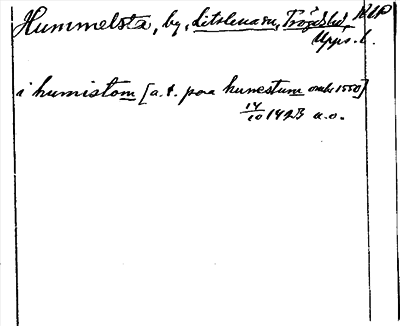 Hummelsta, by, Litslena sn, Trögds hd RAP
Upps. l.
i humistom [a. t. poa humestum omkr 1550]
14/10 1423 a.o.